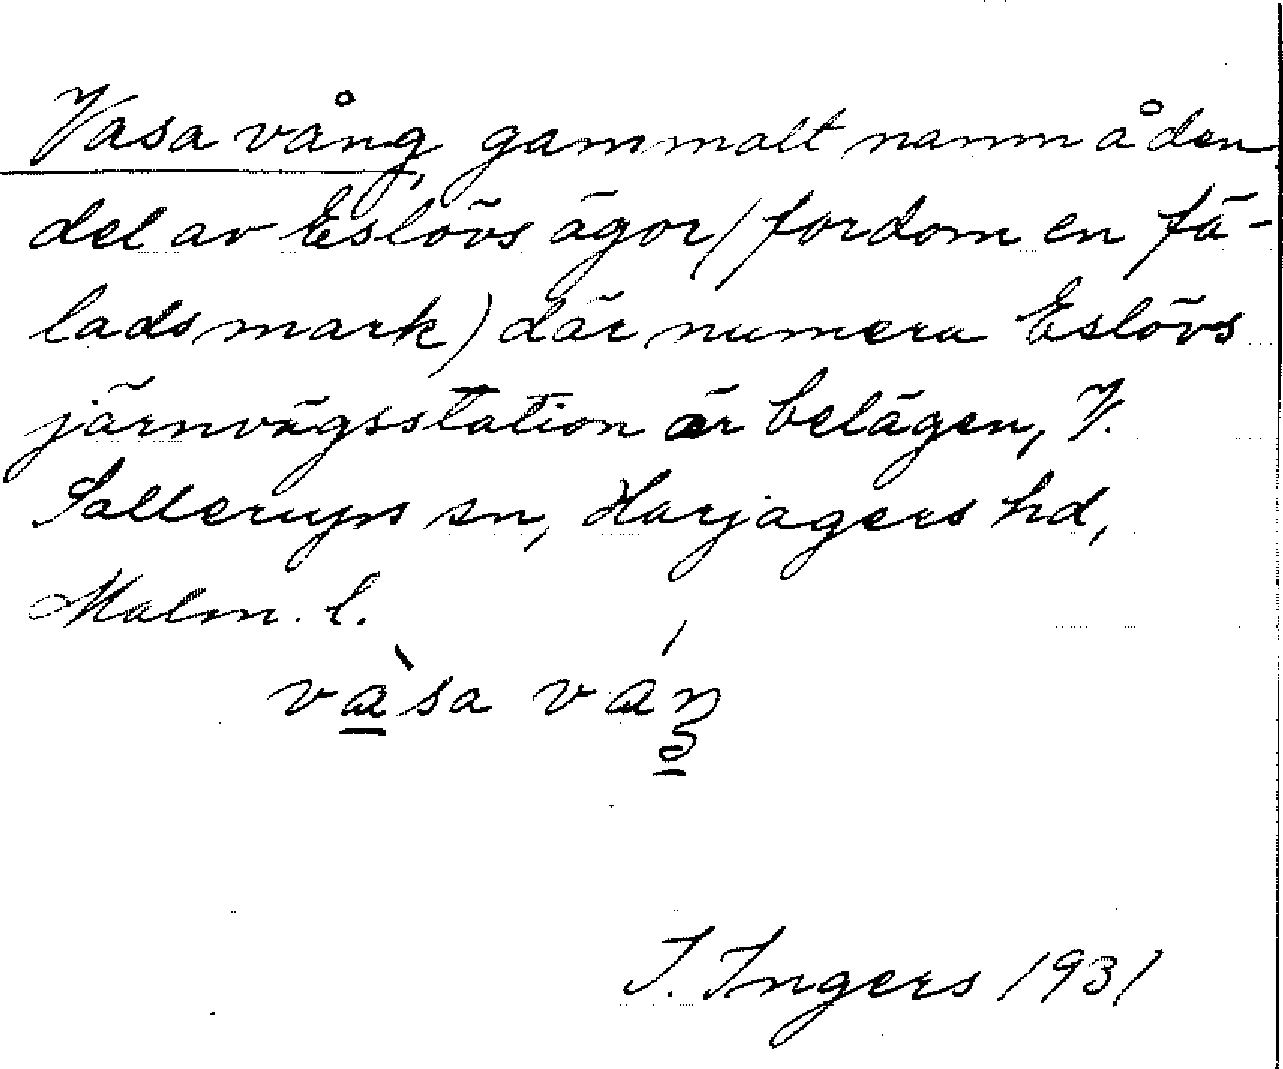 Vasa vång, gammalt namn å den
del av Eslövs ägor (fordom en fä-
ladsmark) där numera Eslövs
järnvägsstation är belägen, V.
Sallerups sn, Harjagers hd,
Malm. l.
và̱sa váŋ
I. Ingers 1931